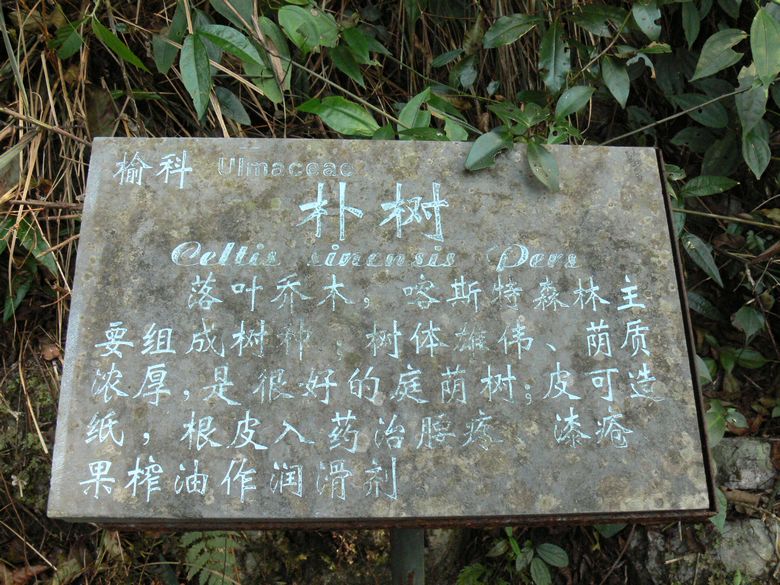 榆科 Ulmaceae
朴树
Celtis sinensis Pers
落叶乔木,喀斯特森林主
要组成树种;树体雄伟、荫质
浓厚,是很好的庭荫树;皮可造
纸,根皮入药治腰疼、漆疮
果榨油作润滑剂